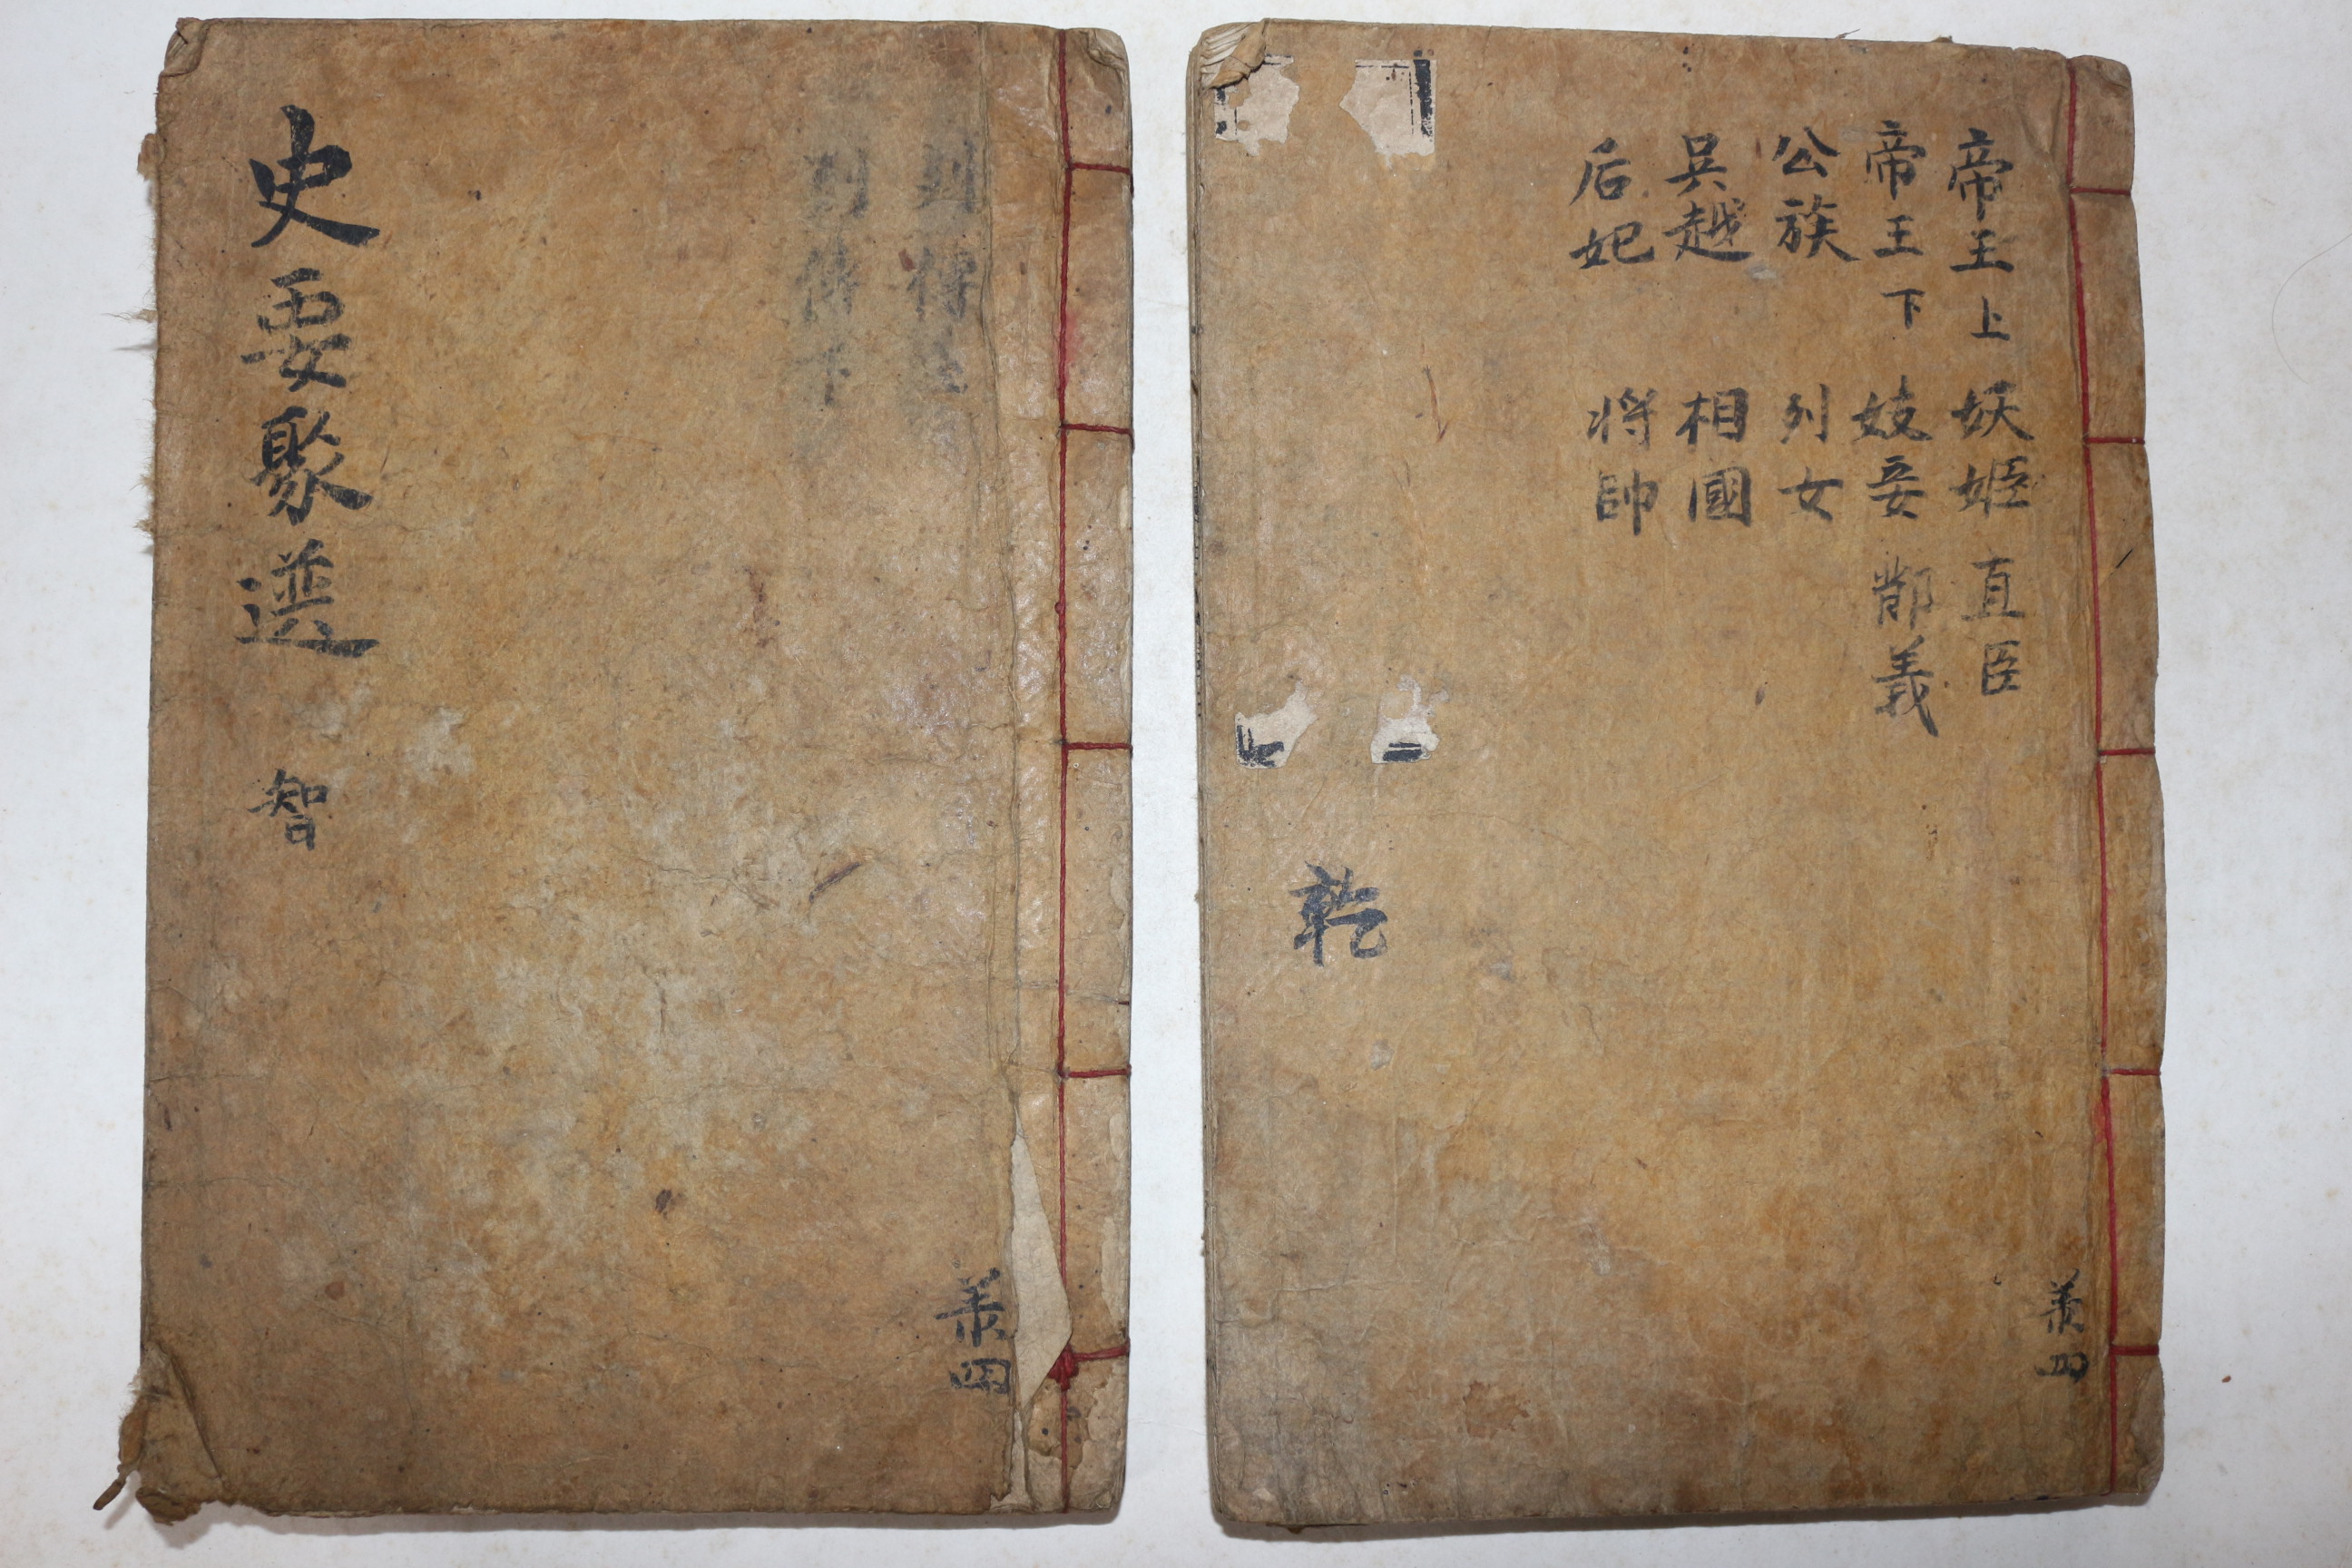 列傳上
列傳下
史要聚選 智
四
帝王上 妖姬 直臣
帝王下 妓妾 節義
公族 列女
吳越 相國
后妃 将帥
乾
四